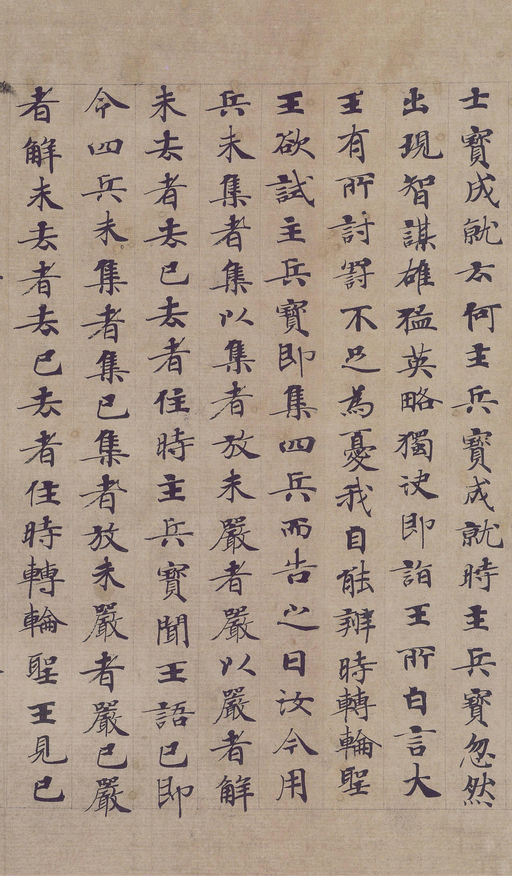 士寶成就云何主兵寶成就時主兵寶忽然
出現智謀雄猛英略獨決即詣王所白言大
王有所討罰不足為憂我自能辦時轉輪聖
王欲試主兵寶即集四兵而告之曰汝今用
兵未集者集以集者放未嚴者嚴以嚴者解
未去者去已去者住時主兵寶聞王語已即
令四兵未集者集已集者放未嚴者嚴已嚴
者解未去者去已去者住時轉輪聖王見已